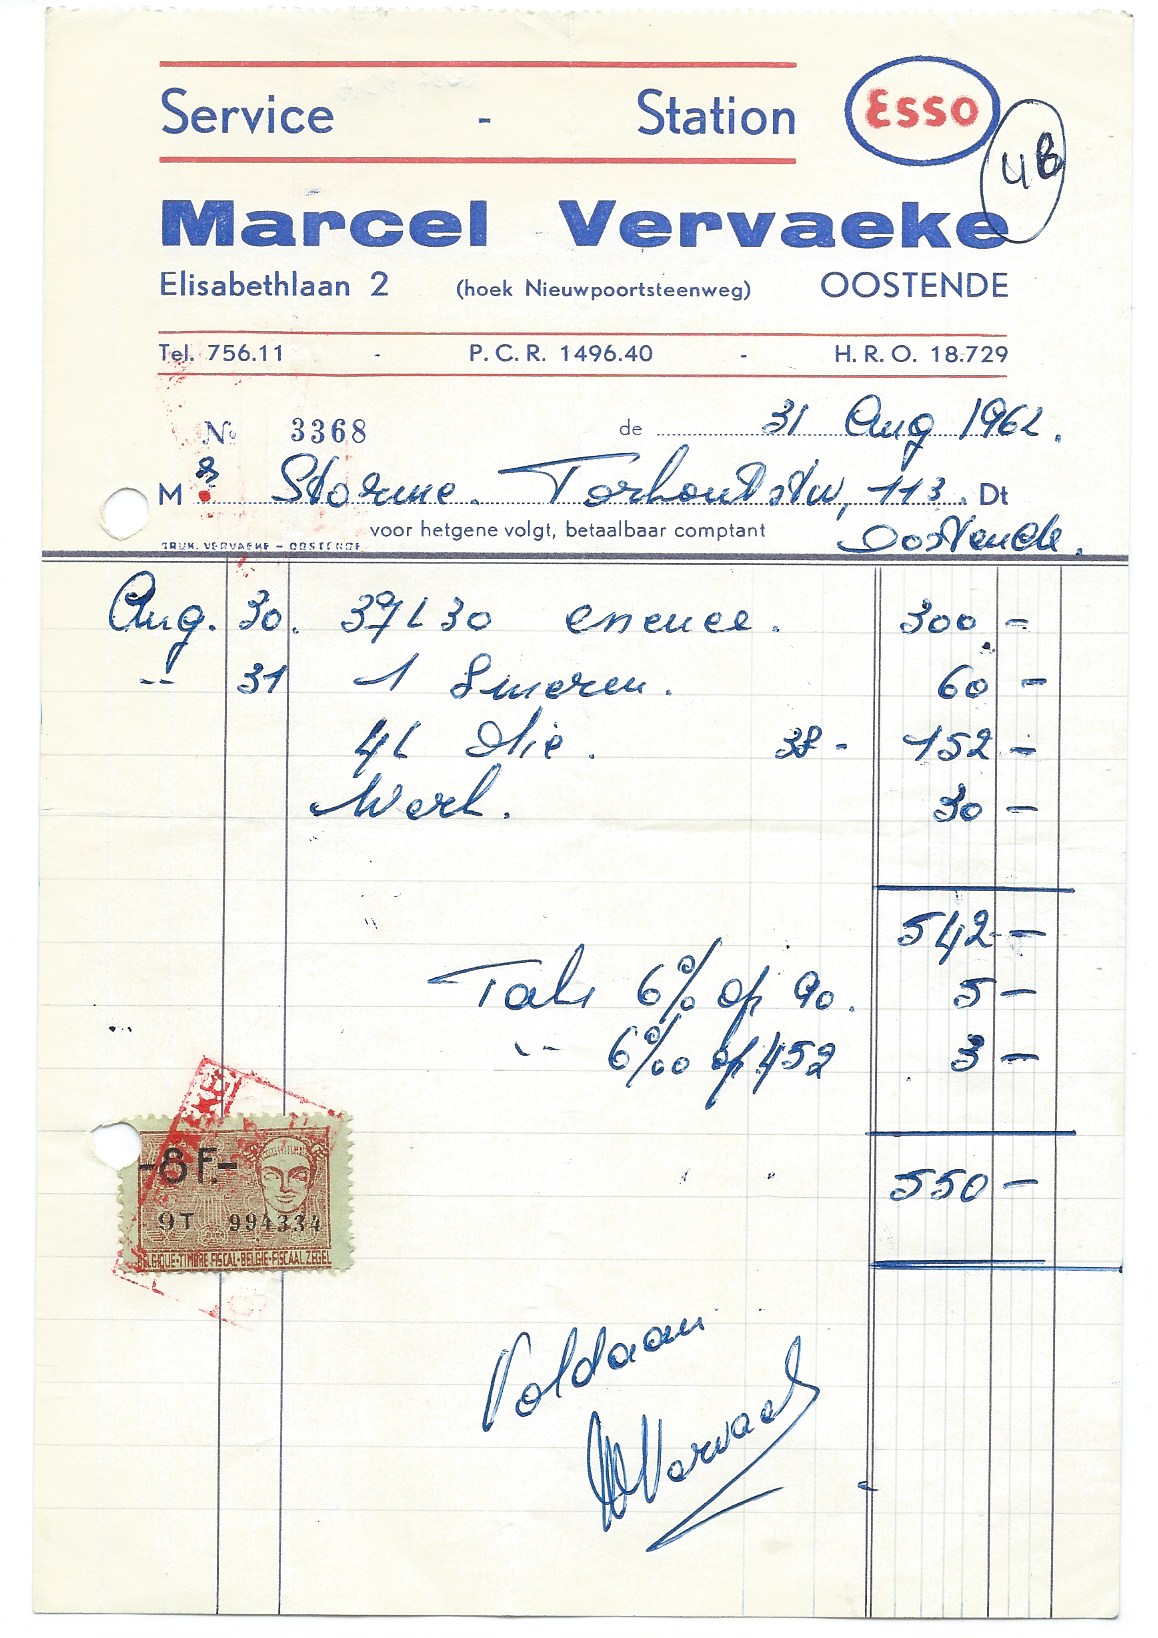 Service - Station Esso
4B
Marcel Vervaeke
Elisabethlaan 2 (hoek Nieuwpoortsteenweg) OOSTENDE
Tel. 756.11 - P.C.R. 1496.40 - H.R.O. 18.729
№ 3368 de 31 Aug 1962.
M Storme. Torhoutstw, 113. Dt
voor hetgene volgt, betaalbaar comptant Oostende.
DRUK. VERVAEKE - OOSTENDE
Aug. 30. 37L30 300 -
-- 31 1 Smeren. 60 -
4L Olie. 38- 152 -
Werk. 30 -
542 -
Taks 6% op 90. 5 -
-- 6‰ op 452 3 -
-8F.-
550 -
9T 994334
BELGIQUE-TIMBRE FISCAL-BELGIE-FISCAALZEGEL
Voldaan
MVervaeke